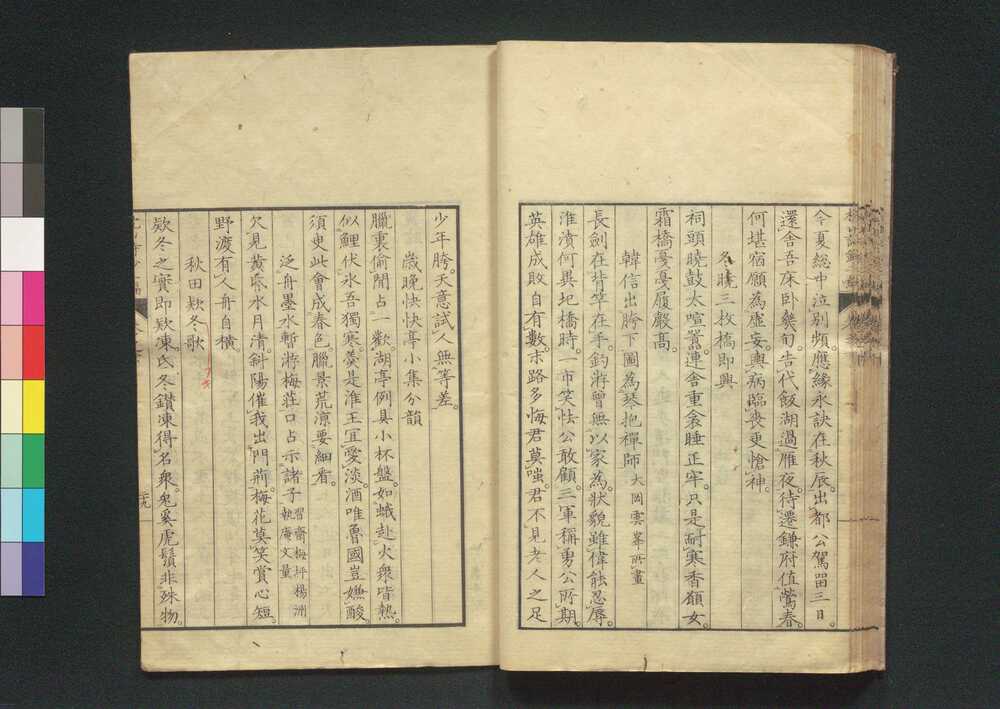 今夏総中泣別頻。應縁永訣在秋辰。出都公駕畄三日。
還舍吾床卧幾旬。告代飯湖過雁夜。待遷鎌府值鶯春。
何堪宿願為虚妄。輿病臨喪更愴神。
名曉三枚橋即興
祠頭曉鼓太喧囂。連舍重衾睡正牢。只是耐寒香額女。
霜橋戞戞履聲高。
韓信出胯下圖為琴抱禪師 大岡雲峯所畫
長劍在背竿在手。釣游曾無以家為。狀貌雖偉能忍辱。
淮濆何異圯橋時。一市笑怯公敢顧。三軍稱勇公所期。
英雄成敗自有數。末路多悔君莫嗤。君不見老人之足
少年胯。天意試人無等差。
歲晚快快亭小集分韻
臘裏偷閒占一歡。湖亭例具小杯盤。如蛾赴火衆皆熱。
似鯉伏氷吾獨寒。羹是淮王宜愛淡。酒唯魯國豈嫌酸。
須臾此會成春色。臘景荒凉要細看。
泛舟墨水暫游梅莊口占示諸子 習齋梅坪楊洲執庵文量
欠見黄昏水月清。斜陽催我出門荊。梅花莫笑賞心短。
野渡有人舟自橫
秋田欵冬歌
欵冬之實即欵凍。氐冬鑽凍得名衆。兔奚虎鬚非殊物。
二九